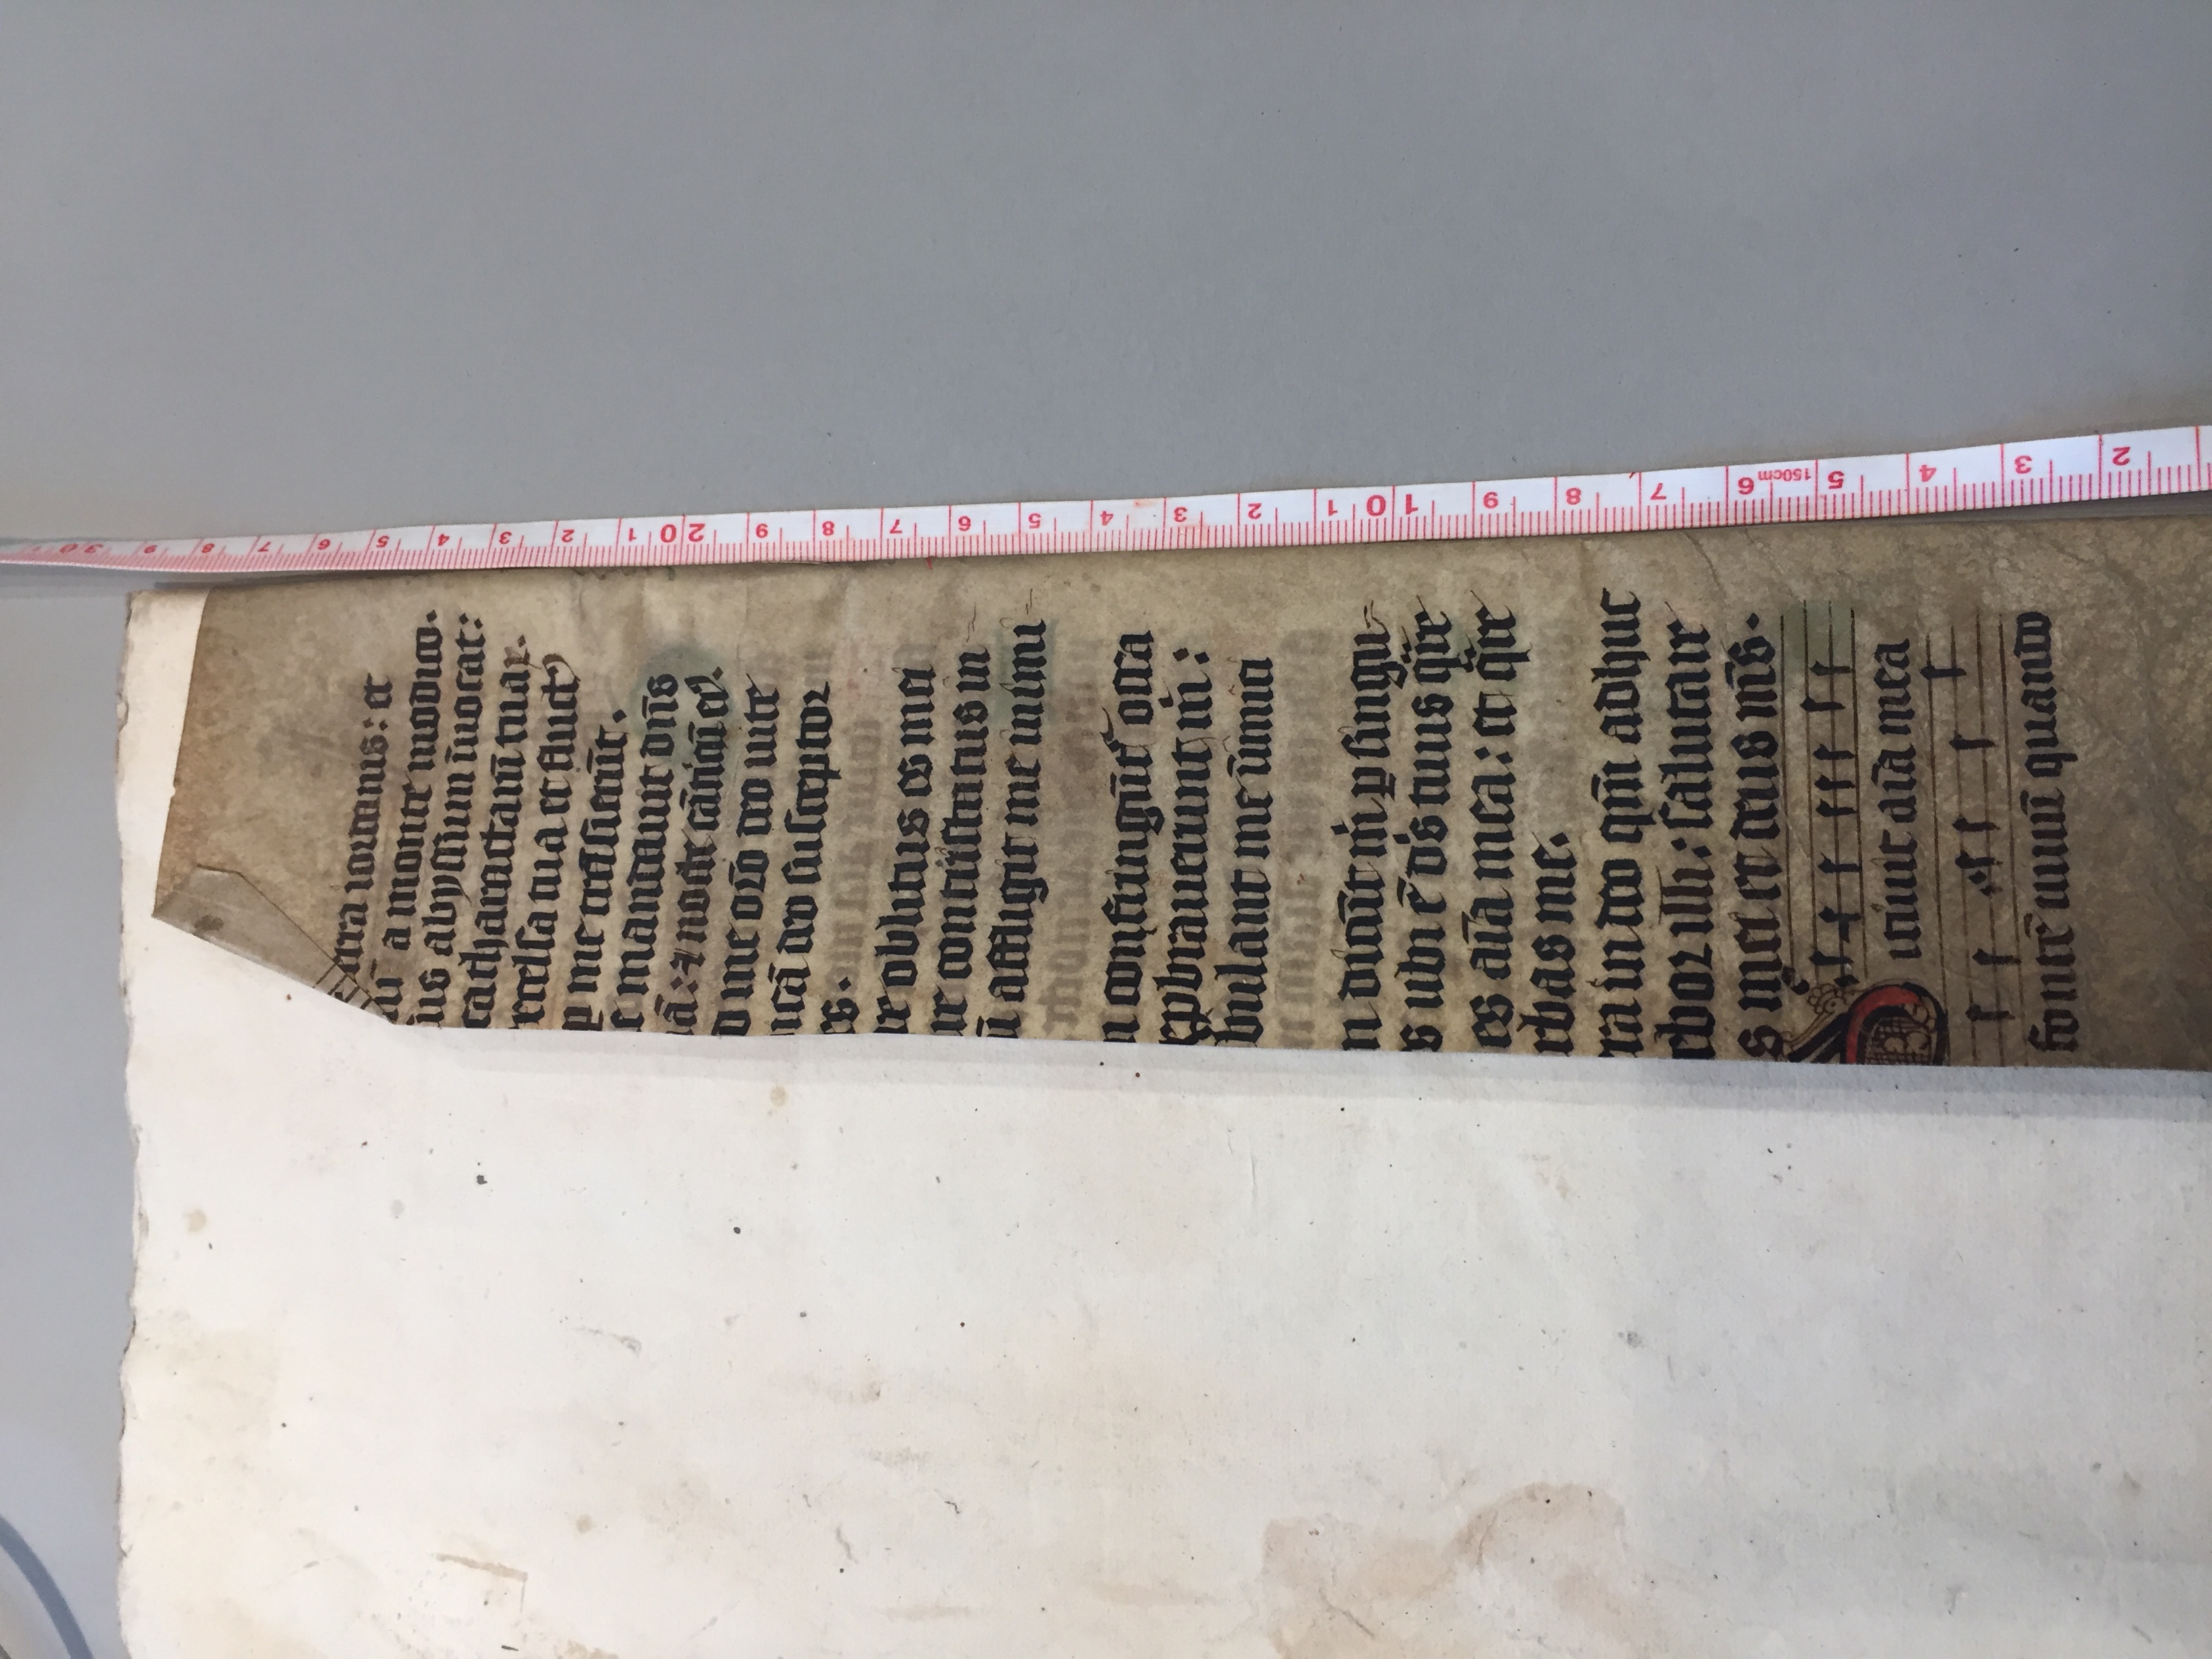 terra iordanis: et
niī a monte modico.
sus abyssum īuocat:
catharactarū tuaꝝ.
excelsa tua et fluctꝰ
ꝑ me trāsierūt.
e mandauit dn̄s
iā: ⁊ nocte cāticū eiꝰ.
d me or̄o deo uite
icā deo susceptor
es.
re oblitus es mei
re contristatus in-
ū affligit me inimi-
n confringūt᷑ ossa
exꝓbrauerunt m̄:
bulant me īimici
n dicūt m̄ ꝑ singu-
s ubi ē d's tuus qͣre
es aīa mea: et qͣre
rbas me.
ra in deo qm̄ adhuc
ebor illi: salutare
s mei et deus m̄s.
Sitiuit aīa mea
fontē uiuū quando
30 9 8 7 6 5 4 3 2 1 20 9 8 7 6 5 4 3 2 1 10 9 8 7 6 150cm 5 4 3 2